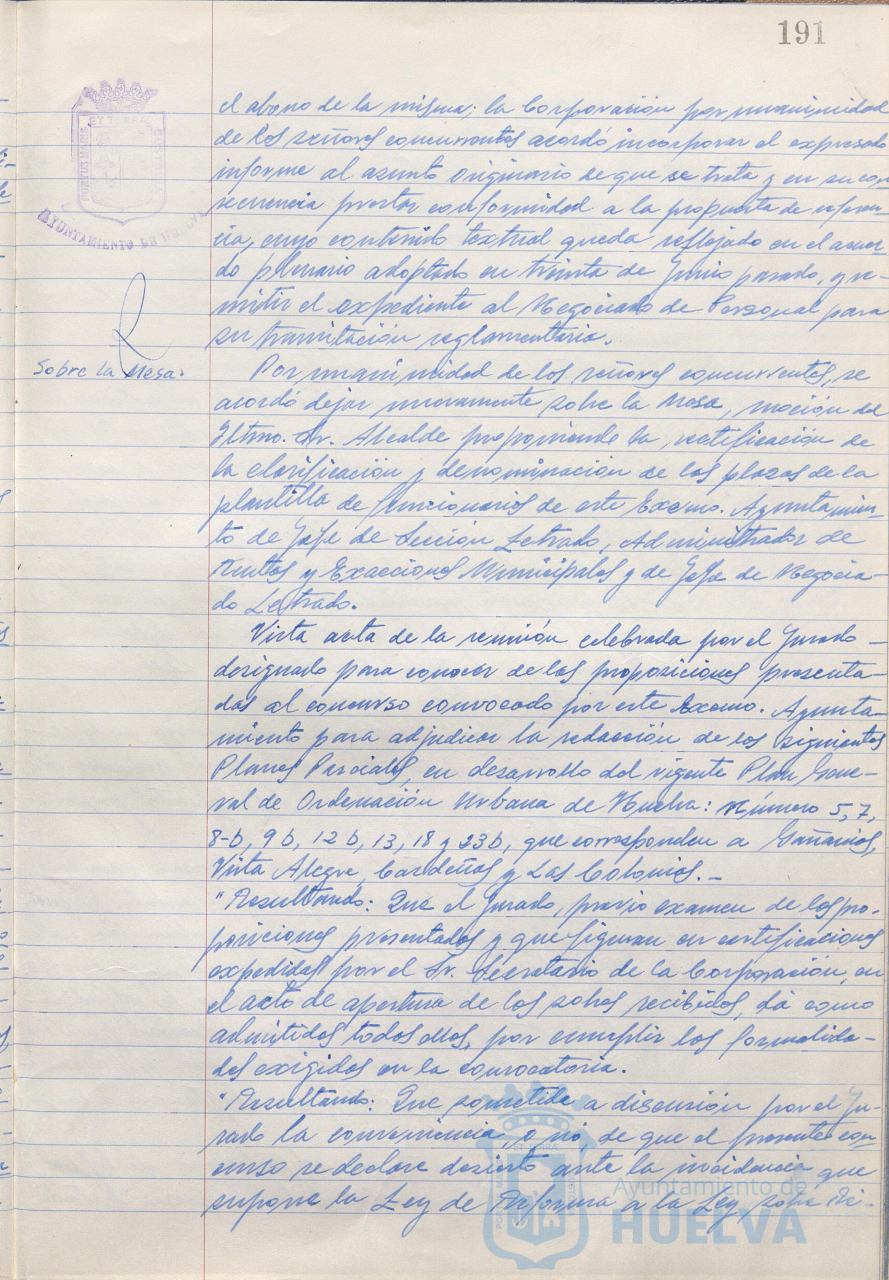 191
PORTUS MARIS ET TERRAE CUSTODIA
AYUNTAMIENTO DE HUELVA
el abono de la misma; la Corporación por unanimidad
de los señores concurrentes acordó incorporar el expresado
informe al asunto originario de que se trata y en su con
secuencia prestar conformidad a la propuesta de referen-
cia, cuyo contenido textual queda reflejado en el acuer-
do plenario adoptado en treinta de Junio pasado, y re-
mitir el expediente al Negociado de Personal para
su tramitación reglamentaria.
Sobre la Mesa.
Por unanimidad de los señores concurrentes, se
acordó dejar nuevamente sobre la Mesa, moción del
Iltmo. Sr. Alcalde proponiendo la rectificación de
la clasificación y denominación de las plazas de la
plantilla de funcionarios de este Excmo. Ayuntamien-
to de Jefe de Sección Letrado, Administrador de
Rentas y Exacciones Municipales y de Jefe de Negocia-
do Letrado.
Vista acta de la reunión celebrada por el Jurado
designado para conocer de las proposiciones presenta-
das al concurso convocado por este Excmo. Ayunta-
miento para adjudicar la redacción de los siguientes
Planes Parciales, en desarrollo del vigente Plan Gene-
ral de Ordenación Urbana de Huelva: Número 5, 7,
8-b, 9 b, 12 b, 13, 18 y 23b, que corresponden a
Vista Alegre, Cardeñas y Las Colonias.-
"Resultando: Que el Jurado, previo examen de las pro-
posiciones presentadas y que figuran en certificaciones
expedidas por el Sr. Secretario de la Corporación, en
el acto de apertura de los sobres recibidos, dá como
admitidos todos ellos, por cumplir las formalida-
des exigidas en la convocatoria.
"Resultando: Que sometida a discusión por el Ju-
rado la conveniencia, o no, de que el presente con
curso se declare desierto ante la incidencia que
supone la Ley de Reforma a la Ley sobre Ré-
Ayuntamiento de
HUELVA